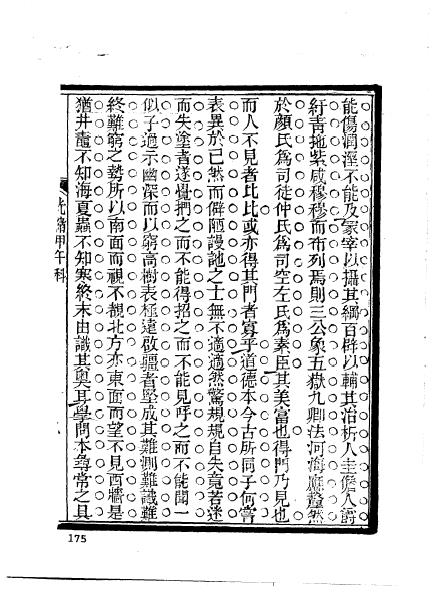 能傷潤溼不能及冢宰以攝其綱百辟以輔其治析人圭儋人爵
紆青拖紫咸穆穆而布列焉則三公象五嶽九卿法河海龐鳌然
於顏氏爲司徒仲氏爲司空左氏爲素臣其美富也得門乃見也
而人不見者比比或亦得其門者寡乎道德本今古所同子何嘗
表異於已然而僻陋謾訑之士無不適適然驚規規自失竟若迷
而失塗者遂覺捫之而不能得招之而不能見呼之而不能聞一
似子過示幽深而以窮高樹表極遠啟疆者堅成其難測難識難
終難窮之勢所以南面而視不覩北方亦東面而望不見西牆是
猶井鼃不知海夏蟲不知寒終末由識其奧耳學問本尋常之具
光緒甲午科
175